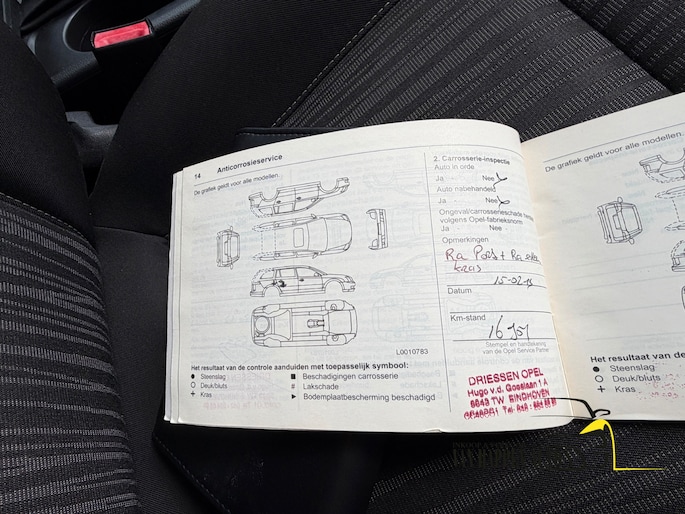 14 Anticorrosieservice
De grafiek geldt voor alle modellen.
L0010783
Het resultaat van de controle aanduiden met toepasselijk symbool:
● Steenslag
○ Deuk/bluts
+ Kras
■ Beschadigingen carrosserie
# Lakschade
► Bodemplaatbescherming beschadigd
2. Carrosserie-inspectie
Auto in orde
Ja Nee
Auto nabehandeld
Ja Nee
Ongeval/carrosserieschade
volgens Opel-fabrieksnorm
Ja Nee
Opmerkingen
Ra + Ra
kras
15-02-
Datum
Km-stand
Stempel en handtekening
van de Opel Service Partner
DRIESSEN OPEL
Hugo v.d. Goeslaan 1 A
TW EINDHOVEN
De grafiek geldt voor alle modellen.
Het resultaat van de
● Steenslag
○ Deuk/bluts
+ Kras